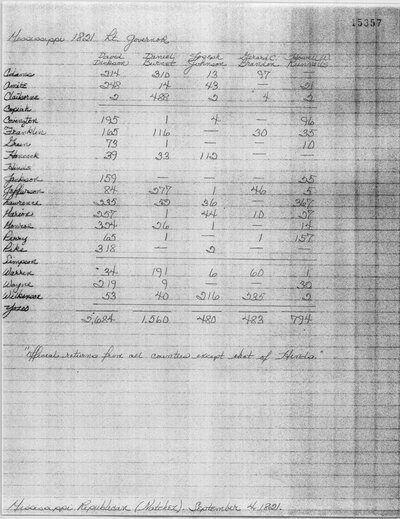 15357
Mississippi 1821 Lt. Governor
David Dickson Daniel Burnet Joseph Johnson Gerard C. Brandon Howell W. Runnels
Adams 214 310 13 97
Amite 248 14 43 — 21
Claiborne 2 488 2 4 2
Copiah
Covington 195 1 4 — 96
Franklin 165 116 — 30 35
Green 73 1 — — 10
Hancock 39 33 112 — —
Jackson 159 — — — 55
Jefferson 84 277 1 46 5
Lawrence 335 32 36 — 367
Marion 257 1 44 10 27
Monroe 324 26 1 — 14
Perry 65 1 — 1 157
Pike 318 — 2 —
Simpson
Warren 34 191 6 60 1
Wayne 219 9 — — 32
Wilkinson 53 40 216 235 2
Yazoo
2,684 1,560 480 483 794
"Official returns from all counties except that of Hinds."
Mississippi Republican (Natchez), September 4, 1821.